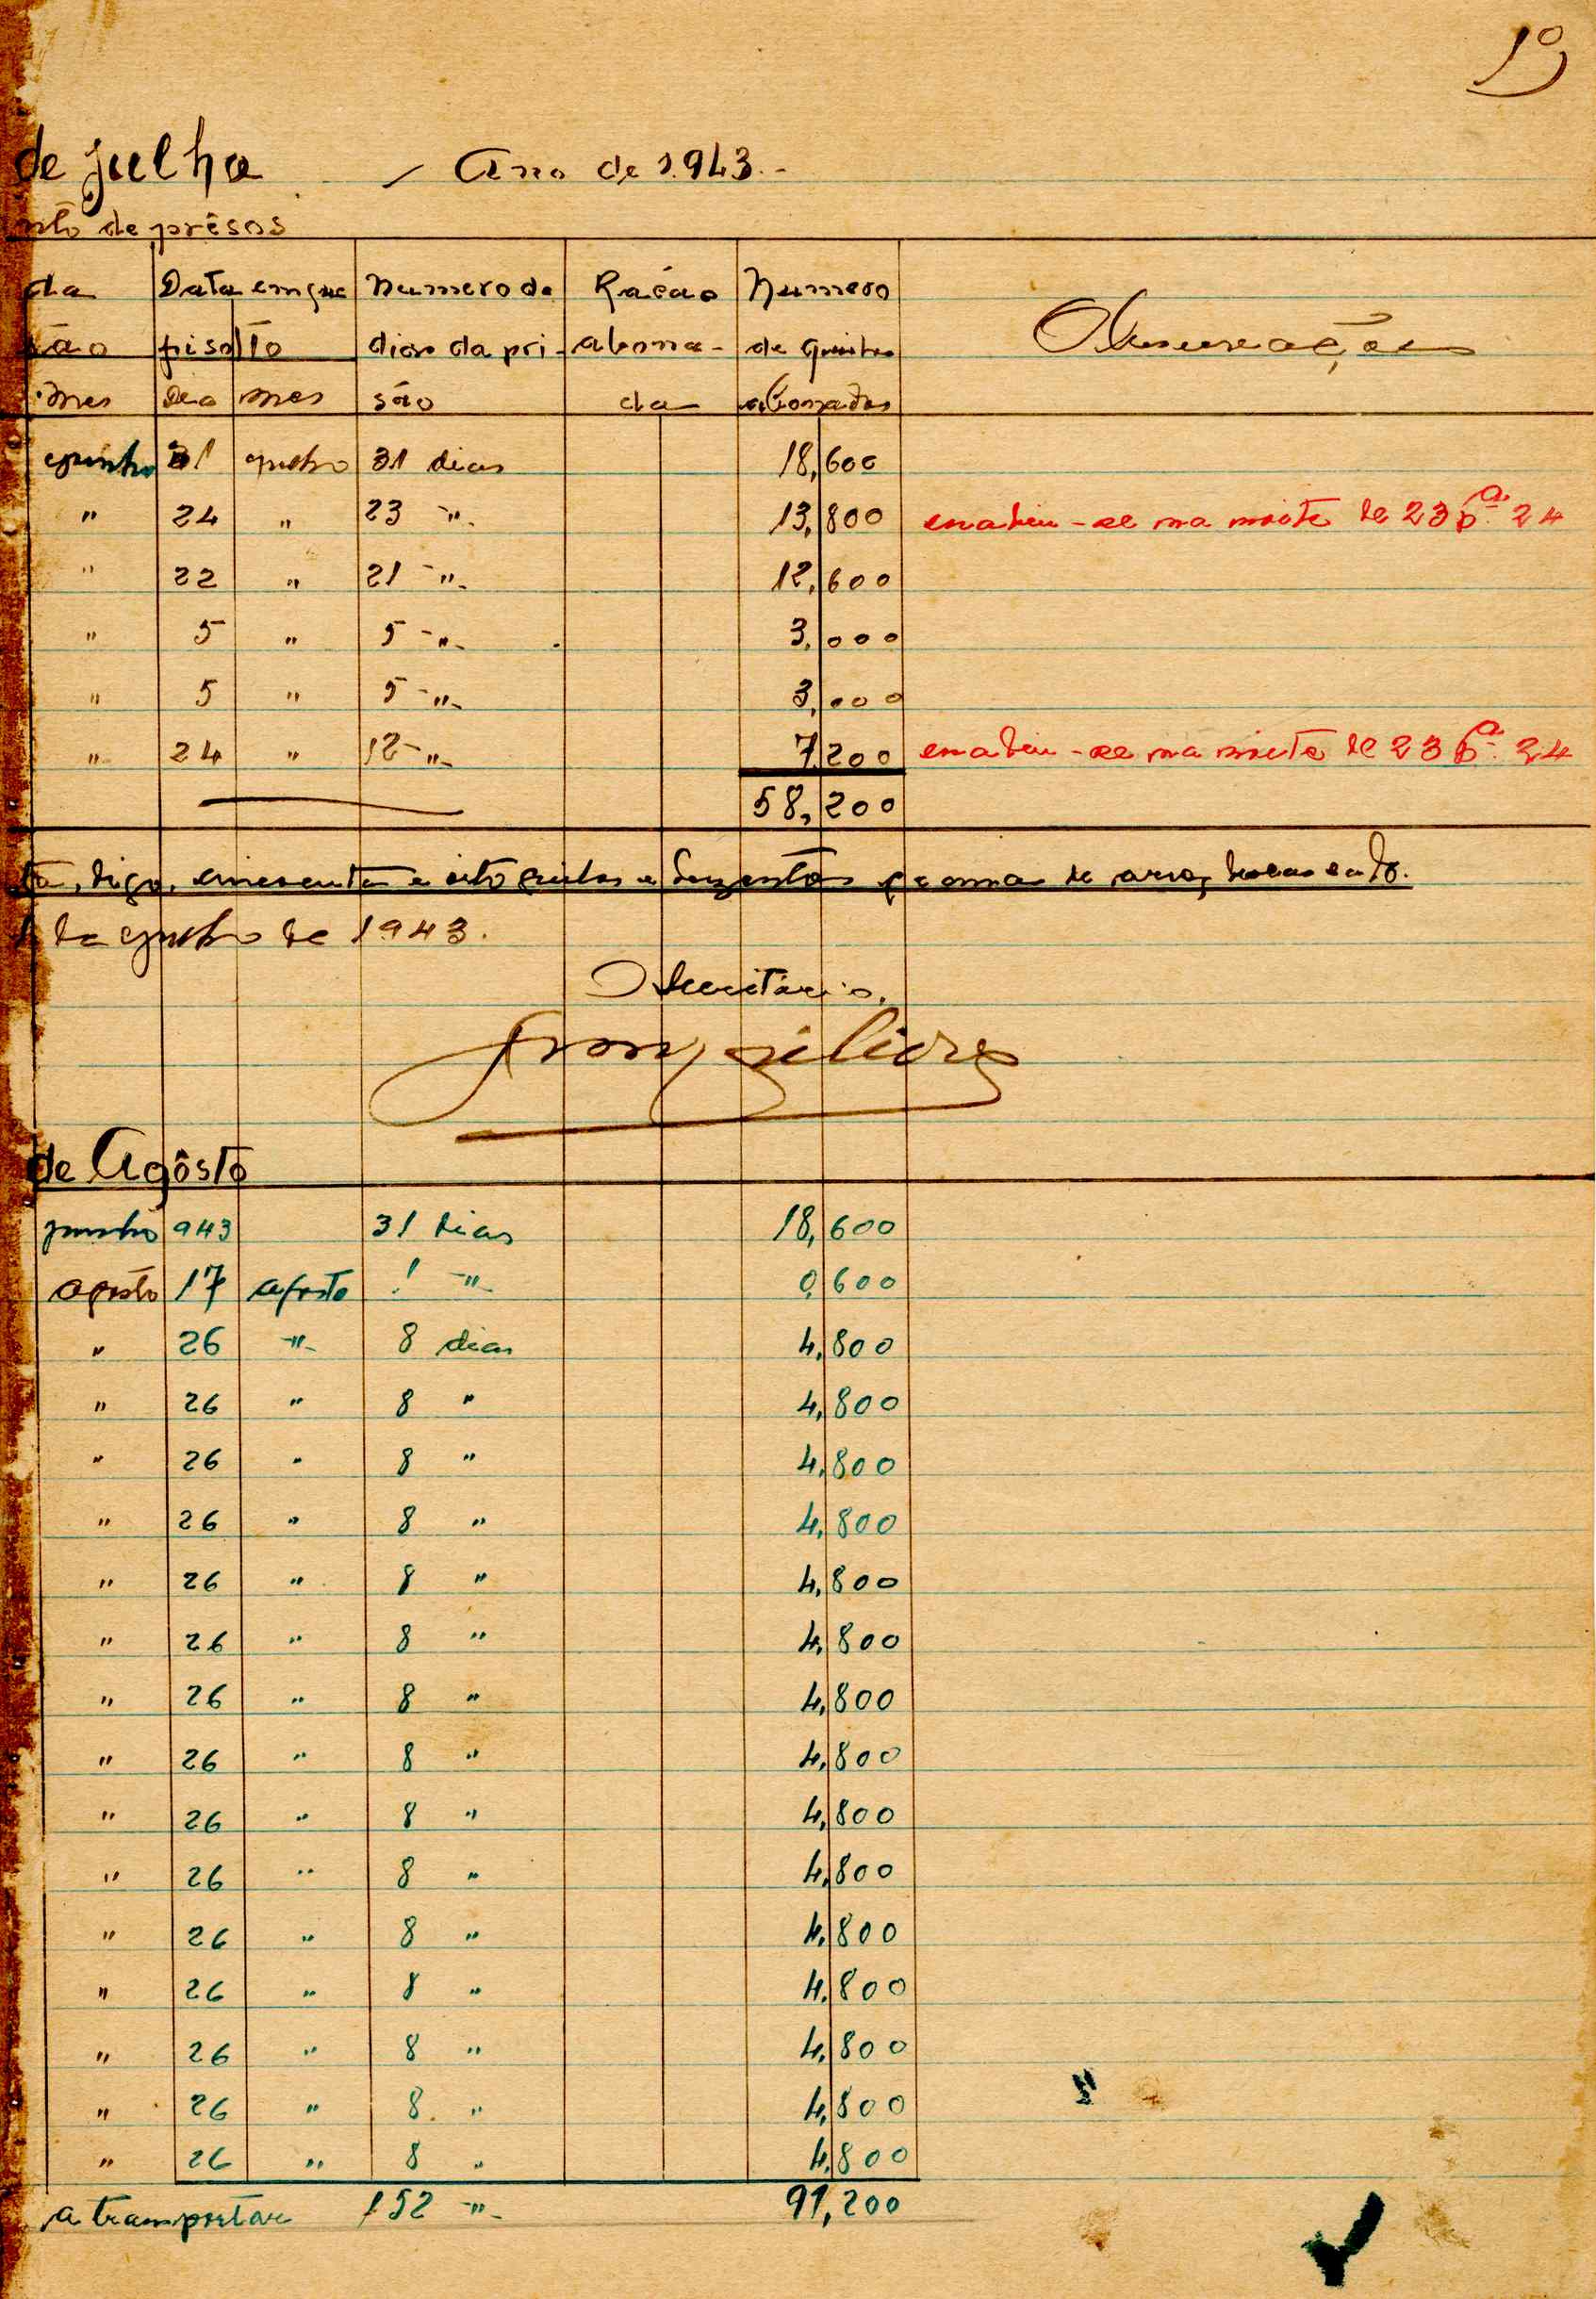 19
de julho - Ano de 1.943.-
nto de prêsos
da Data em que Numero de Ração Numero
ão fi solto dias da pri- abona- de quilos Observações
mes Dia mes são da abonados
junho 31 julho 31 dias 18,600
" 24 " 23 -"- 13,800 evadiu-se na noite de 23 pª 24
" 22 " 21 -"- 12,600
" 5 " 5 -"- 3,000
" 5 " 5 -"- 3,000
" 24 " 12 -"- 7,200 evadiu-se na noite de 23 pª 24
58,200
digo, cincoenta e oito quilos e duzentos gramas de arroz descascado.
de julho de 1943.
O Secretário,
de Agôsto
junho 943 31 dias 18,600
agosto 17 agosto 1 -"- 0,600
" 26 -"- 8 dias 4,800
" 26 " 8 " 4,800
" 26 " 8 " 4,800
" 26 " 8 " 4,800
" 26 " 8 " 4,800
" 26 " 8 " 4,800
" 26 " 8 " 4,800
" 26 " 8 " 4,800
" 26 " 8 " 4,800
" 26 " 8 " 4,800
" 26 " 8 " 4,800
" 26 " 8 " 4,800
" 26 " 8 " 4,800
" 26 " 8 " 4,800
" 26 " 8 " 4,800
a transportar 152 -"- 91,200